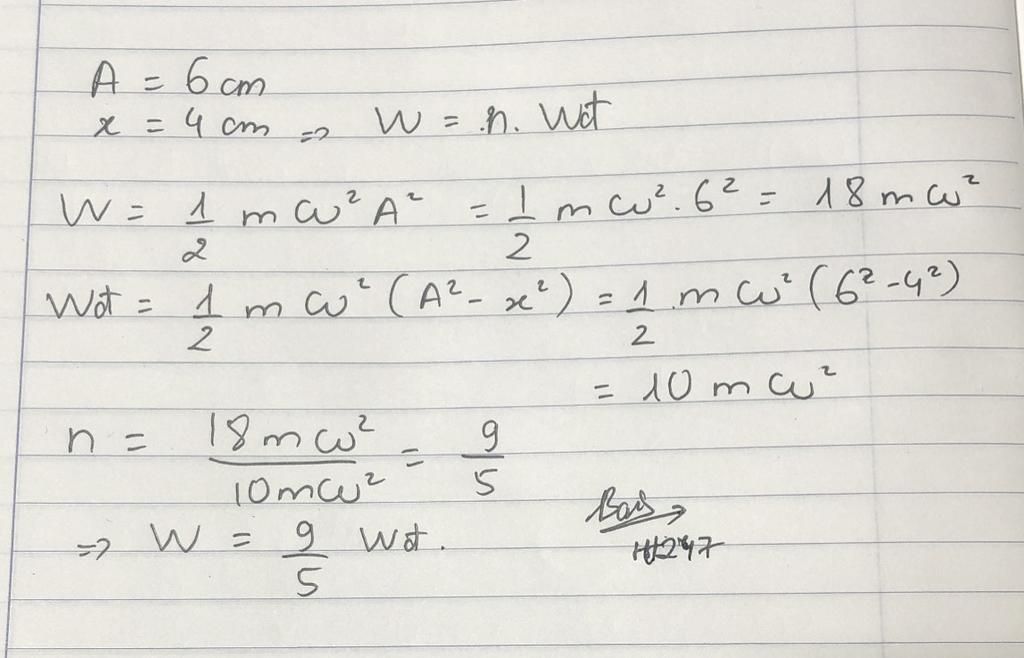 A = 6 cm
x = 4 cm => W = n. Wđt
W = 1/2 m ω² A² = 1/2 m ω². 6² = 18 m ω²
Wđt = 1/2 m ω² (A² - x²) = 1/2 m ω² (6² - 4²)
= 10 m ω²
n = 18 m ω² / 10 m ω² = 9/5
=> W = 9/5 Wđt.